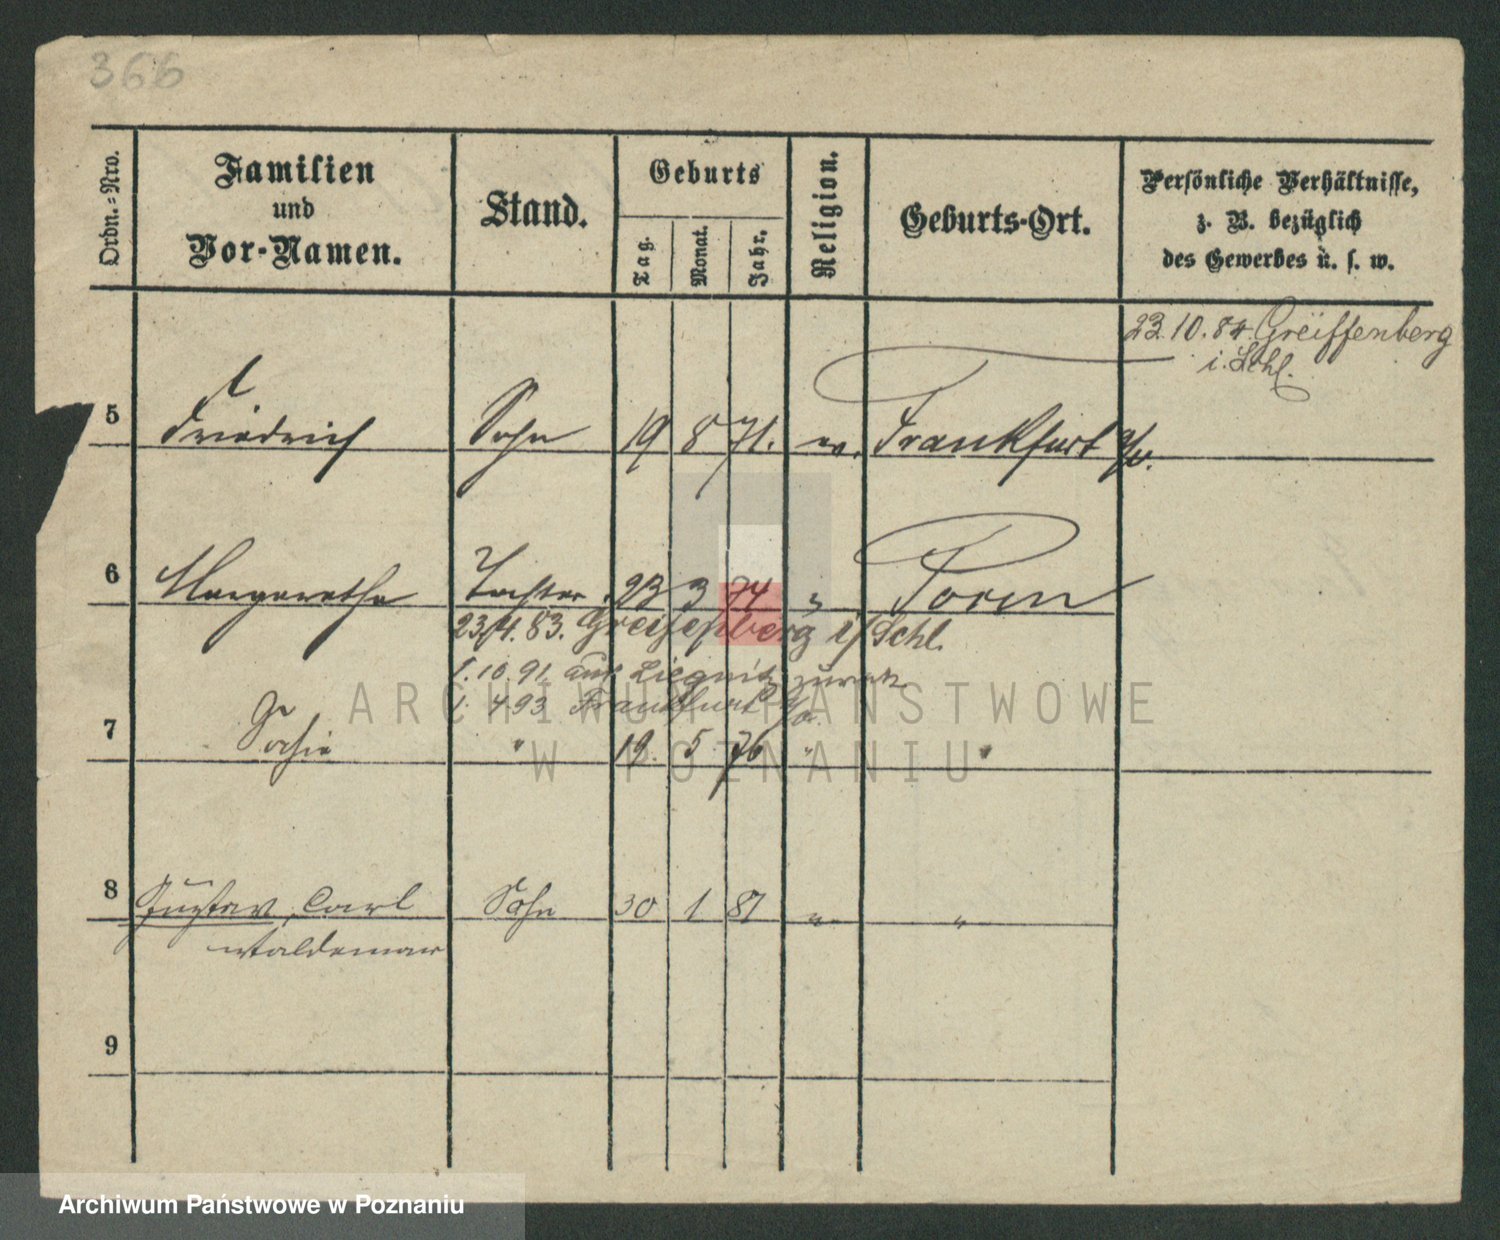 366
Ordn.=Nro.
Familien
und
Vor-Namen.
Stand.
Geburts
Tag.
Monat.
Jahr.
Religion.
Geburts-Ort.
Persönliche Verhältnisse,
z. B. bezüglich
des Gewerbes u. s. w.
23.10.84. Greiffenberg
i. Schl.
5 Friedrich Sohn 19 8 71. ev. Frankfurt a/O.
6 Margarethe Tochter 23 3 74 " Posen
23/4. 83. Greifenberg i/Schl.
1. 10. 91 aus Liegnitz zurück
1. 4 93 Frankfurt a/o.
7 Sofie " 19. 5 76 " "
8 Gustav, Carl Sohn 30 1 81 " "
Waldemar
9
ARCHIWUM PAŃSTWOWE
W POZNANIU
Archiwum Państwowe w Poznaniu